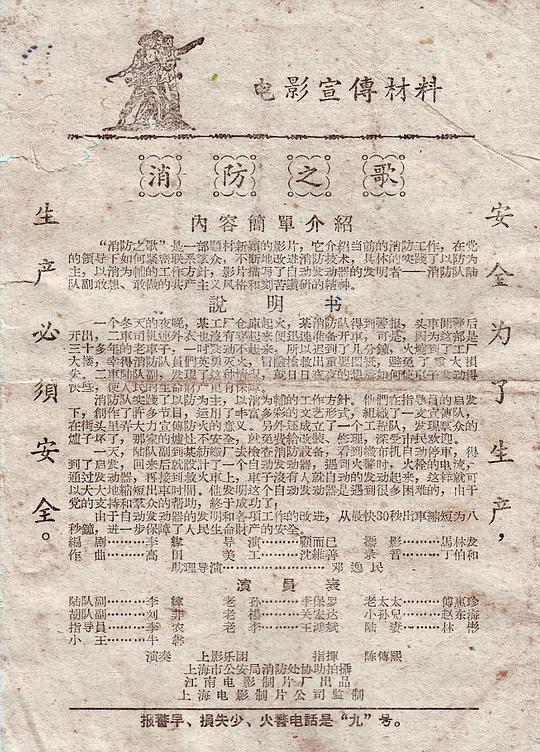 电影宣傳材料
消防之歌
安全为了生产，
生产必須安全。
內容簡單介紹
“消防之歌”是一部題材新穎的影片，它介紹当前的消防工作，在党
的領导下如何紧密联系羣众，不断地改进消防技术，具体的实践了以防为
主，以消为輔的工作方針，影片描写了自动发动器的发明者——消防队陆
队副敢想、敢做的共产主义风格和刻苦鑽研的精神。
說明书
一个冬天的夜晚，某工厂仓庫起火，某消防队得到警报，头車開警后
开出，二車司机連外衣也沒有穿起来便迅速准备开車，可是，因为这部
三十多年的老車子，一时发动不起来，所以迟到了几分鐘，火燒到了工厂
大楼，幸得消防队員們英勇灭火，冒險搶救出重要图紙，避免了重大損
失。二車陆队副，发現了这种情况，成日日夜夜的想着如何使車子发动得
快些，使人民的生命財产更有保障。
消防队实践了以防为主，以消为輔的工作方針。他們在指导員的启发
下，創作了許多节目，运用了丰富多彩的文艺形式，組織了一支宣傳队，
在街头里弄大力宣傳防火的意义。另外还成立了一个工程队，发現羣众的
爐子坏了，那家的爐灶不安全，就免費給改裝、修理，深受市民欢迎。
一天，陆队副到某紡織厂去檢查消防設备，看到織布机自动停車，得
到了启发，回来后就設計了一个自动发动器，遇到火警时，火栓的电流，
通过发动器，再接到救火車上，車子沒有人就自动的发动起来，这样就可
以大大地縮短出車时間。他发明这个自动发动器是遇到很多困难的，由于
党的支持和羣众的帮助，終于成功了！
由于自动发动器的发明和各項工作的改进，从最快30秒出車縮短为八
秒鐘，进一步保障了人民生命財产的安全。
編剧………李緯 导演………顧而已 攝影………馬林发
作曲………高田 美工………沈維善 录音………丁伯和
助理导演………………邓逸民
演員表
陆队副………李緯 老孙………李保罗 老太太………傅惠珍
胡队副………刘非 老楊………关宏达 小孙兒………赵东海
指导員………李农 老李………王鴻斌 陆妻………林彬
小王………牛犇
演奏 上影乐团 指揮 陈傳熙
上海市公安局消防处协助拍攝
江南电影制片厂出品
上海电影制片公司監制
报警早、損失少、火警电話是“九”号。